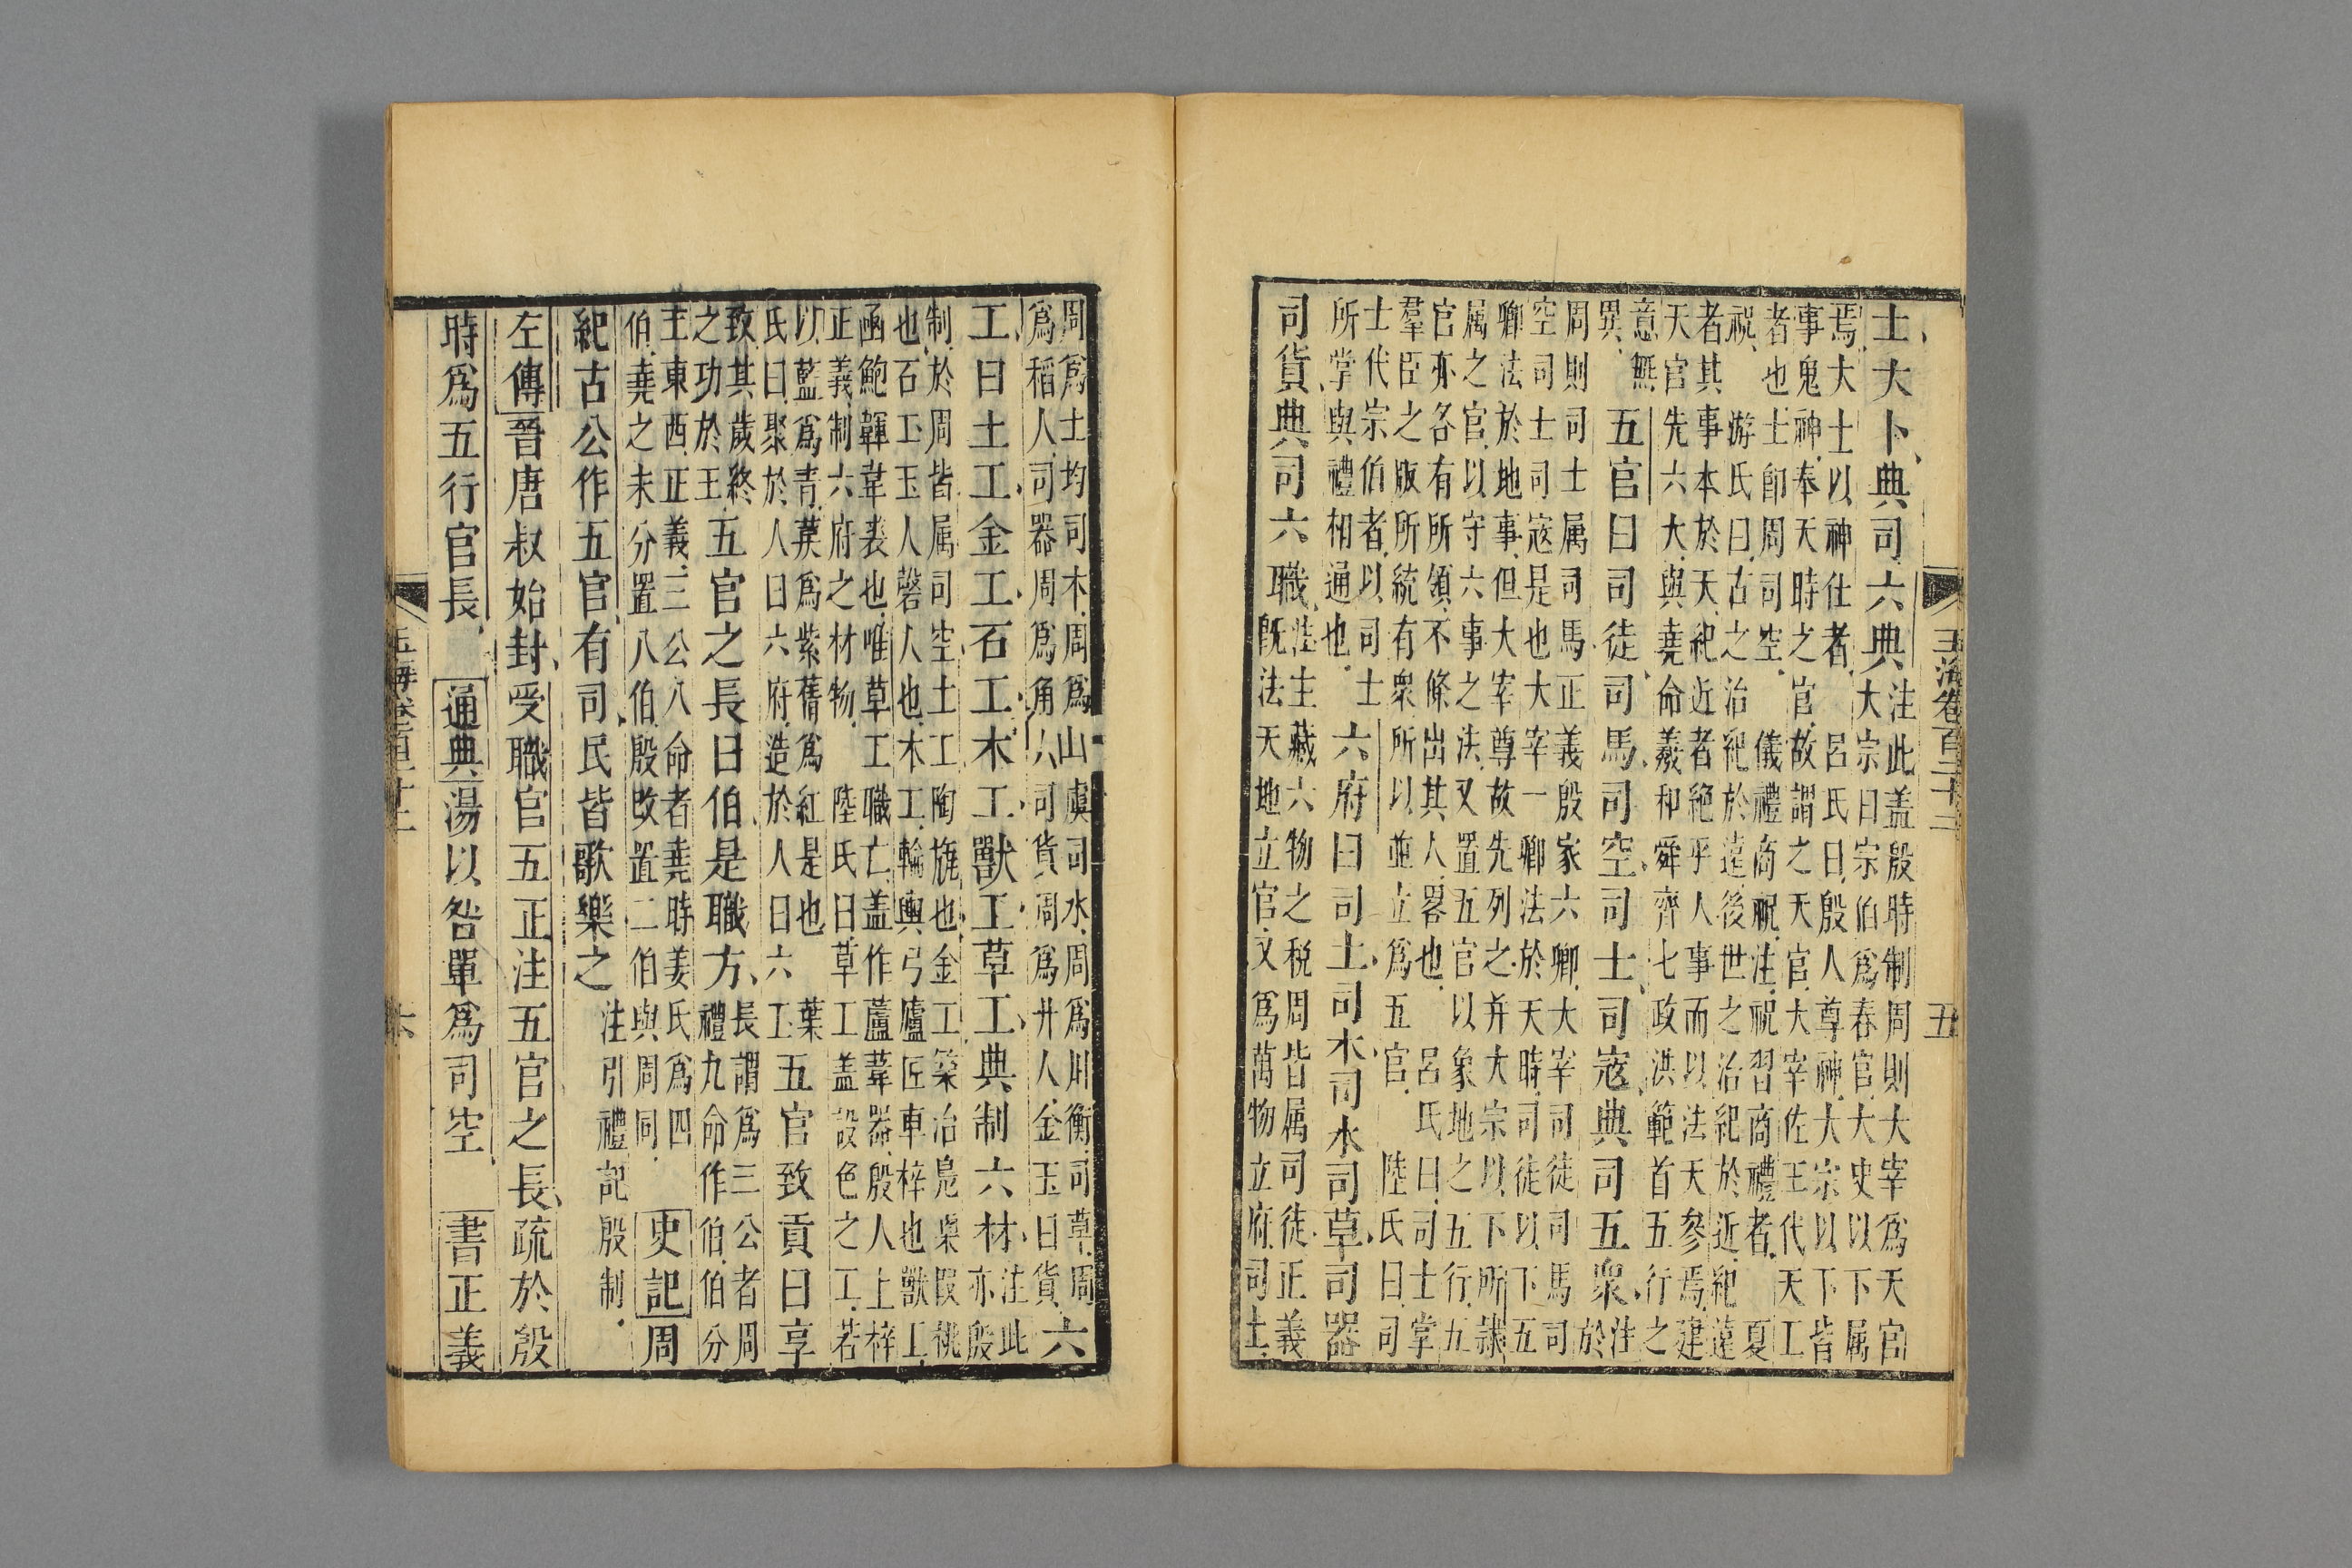 玉海卷百二十二 五
士大卜典司六典
注此盖殷時制周則大宰爲天官
大宗曰宗伯爲春官大史以下属
焉大士以神仕者 呂氏曰殷人尊神大宗以下皆
事鬼神奉天時之官故謂之天官大宰佐王代天工
者也士卽周司空 儀禮商祝注祝習商禮者 夏
祝 游氏曰古之治紀於遠後世之治紀於近紀遠
者其事本於天紀近者絶乎人事而以法天參焉建
天官先六大與堯命羲和舜齊七政洪範首五行之
意無
異
五官曰司徒司馬司空司士司寇典司五衆
注
於
周則司士属司馬正義殷家六卿大宰司徒司馬司
空司士司寇是也大宰一卿法於天時司徒以下五
卿法於地事但大宰尊故先列之并大宗以下所隷
属之官以守六事之法又置五官以象地之五行五
官亦各有所領不條出其人畧也 呂氏曰司士掌
羣臣之版所統有衆所以並立爲五官 陸氏曰司
士代宗伯者以司士
所掌與禮相通也
六府曰司土司木司水司草司器
司貨典司六職
注主藏六物之税周皆属司徒正義
旣法天地立官又爲萬物立府司土
周爲土均司木周爲山虞司水周爲川衡司草周
爲稻人司器周爲角人司貨周爲丱人金玉曰貨
六
工曰土工金工石工木工獸工草工典制六材
注此
亦殷
制於周皆属司空土工陶旊也金工築冶鳧㮚段桃
也石工玉人磬人也木工輪輿弓廬匠車梓也獸工
函鮑韗韋裘也唯草工職亡盖作萑葦器殷人上梓
正義制六府之材物 陸氏曰草工盖設色之工若
以藍爲青茣爲紫蒨爲紅是也 葉
氏曰聚於人曰六府造於人曰六工
五官致貢曰享
致其歳終
之功於王
五官之長曰伯是職方
長謂爲三公者周
禮九命作伯伯分
主東西正義三公八命者堯時姜氏爲四
伯堯之末分置八伯殷改置二伯與周同
史記周
紀古公作五官有司民皆歌樂之
注引禮記殷制
左傳晉唐叔始封受職官五正注五官之長疏於殷
時爲五行官長 通典湯以咎單爲司空 書正義
六